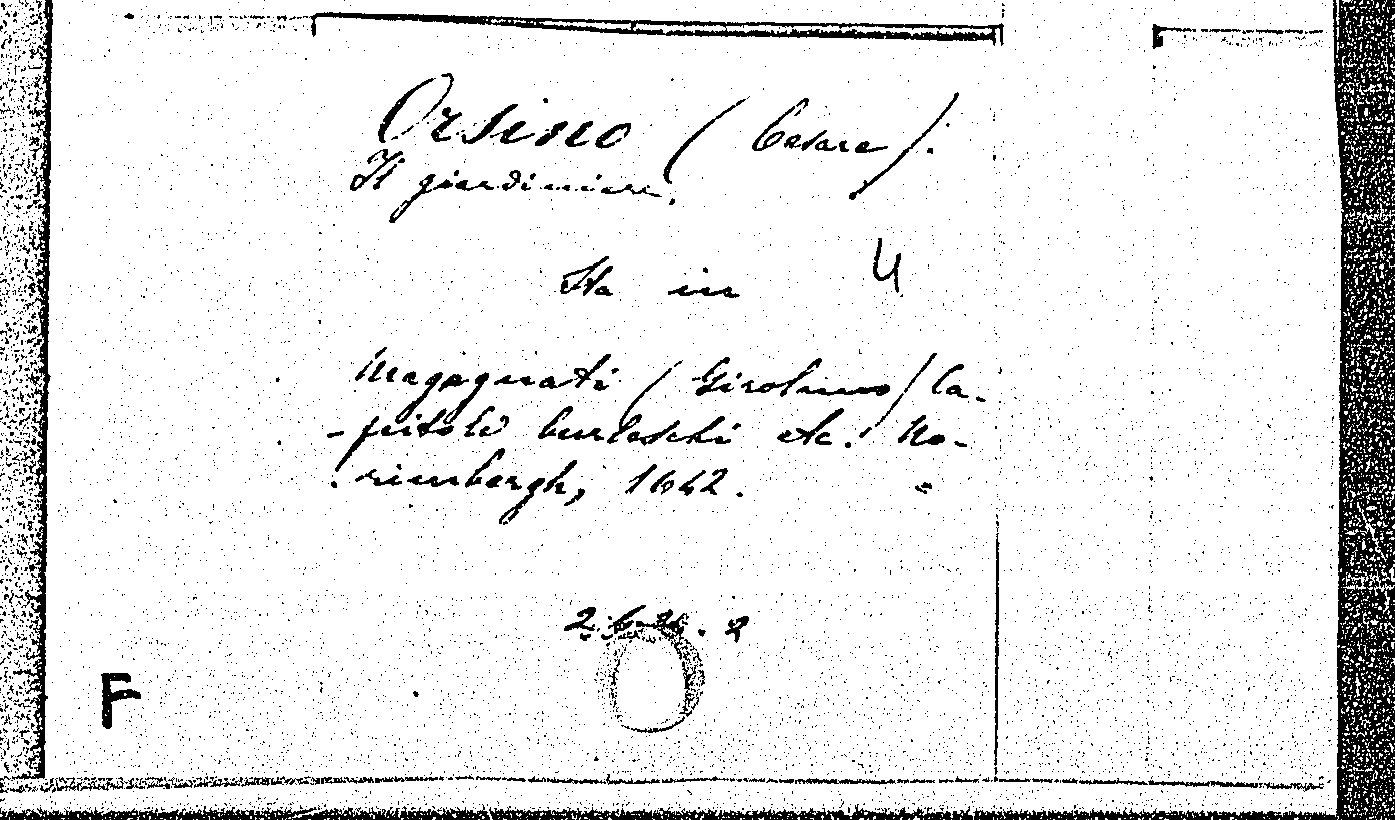 Orsino (Cesare).
Il giardiniere.
Sta in
4
Magagnati (Girolamo) Ca-
-pitoli burleschi etc. No-
rimbergh, 1642.
F